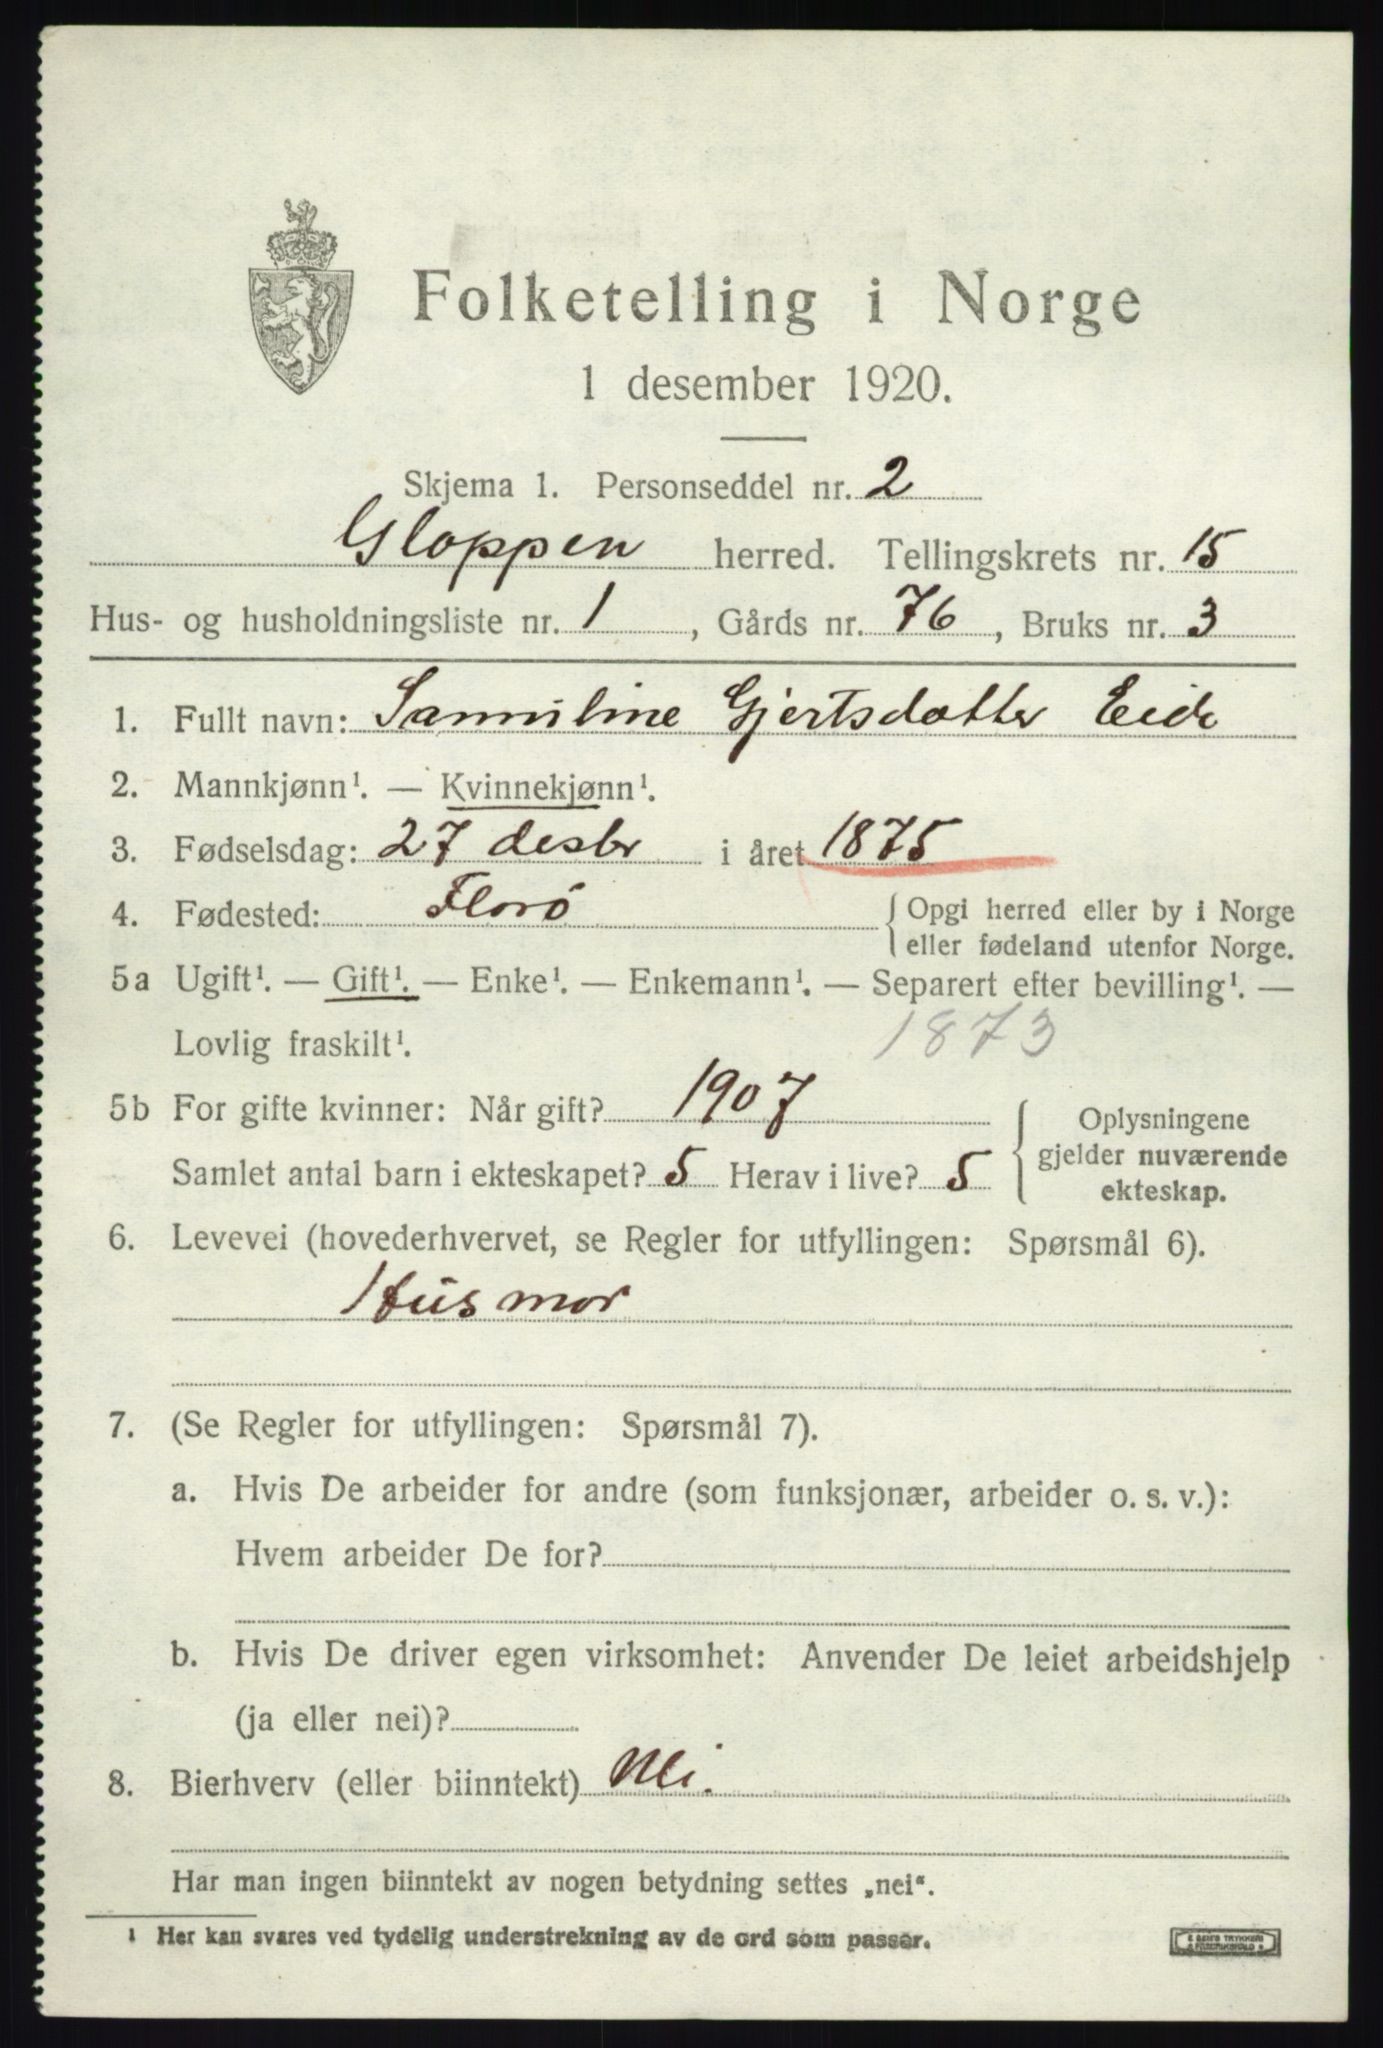 Folketelling i Norge
1 desember 1920.
Skjema 1. Personseddel nr. 2
Gloppen herred. Tellingskrets nr. 15
Hus- og husholdningsliste nr. 1, Gårds nr. 76, Bruks nr. 3
1. Fullt navn: Samuline Gjertsdatter Eide
2. Mannkjønn¹. — Kvinnekjønn¹.
3. Fødselsdag: 27 desbr i året 1875
4. Fødested: Florö { Opgi herred eller by i Norge
eller fødeland utenfor Norge.
5a Ugift¹. — Gift¹. — Enke¹. — Enkemann¹. — Separert efter bevilling¹. —
Lovlig fraskilt¹. 1873
5b For gifte kvinner: Når gift? 1907 { Oplysningene
gjelder nuværende
ekteskap.
Samlet antal barn i ekteskapet? 5 Herav i live? 5
6. Levevei (hovederhvervet, se Regler for utfyllingen: Spørsmål 6).
Husmor
7. (Se Regler for utfyllingen: Spørsmål 7).
a. Hvis De arbeider for andre (som funksjonær, arbeider o. s. v.):
Hvem arbeider De for?
b. Hvis De driver egen virksomhet: Anvender De leiet arbeidshjelp
(ja eller nei)?
8. Bierhverv (eller biinntekt) Nei.
Har man ingen biinntekt av nogen betydning settes „nei“.
¹ Her kan svares ved tydelig understrekning av de ord som passer.